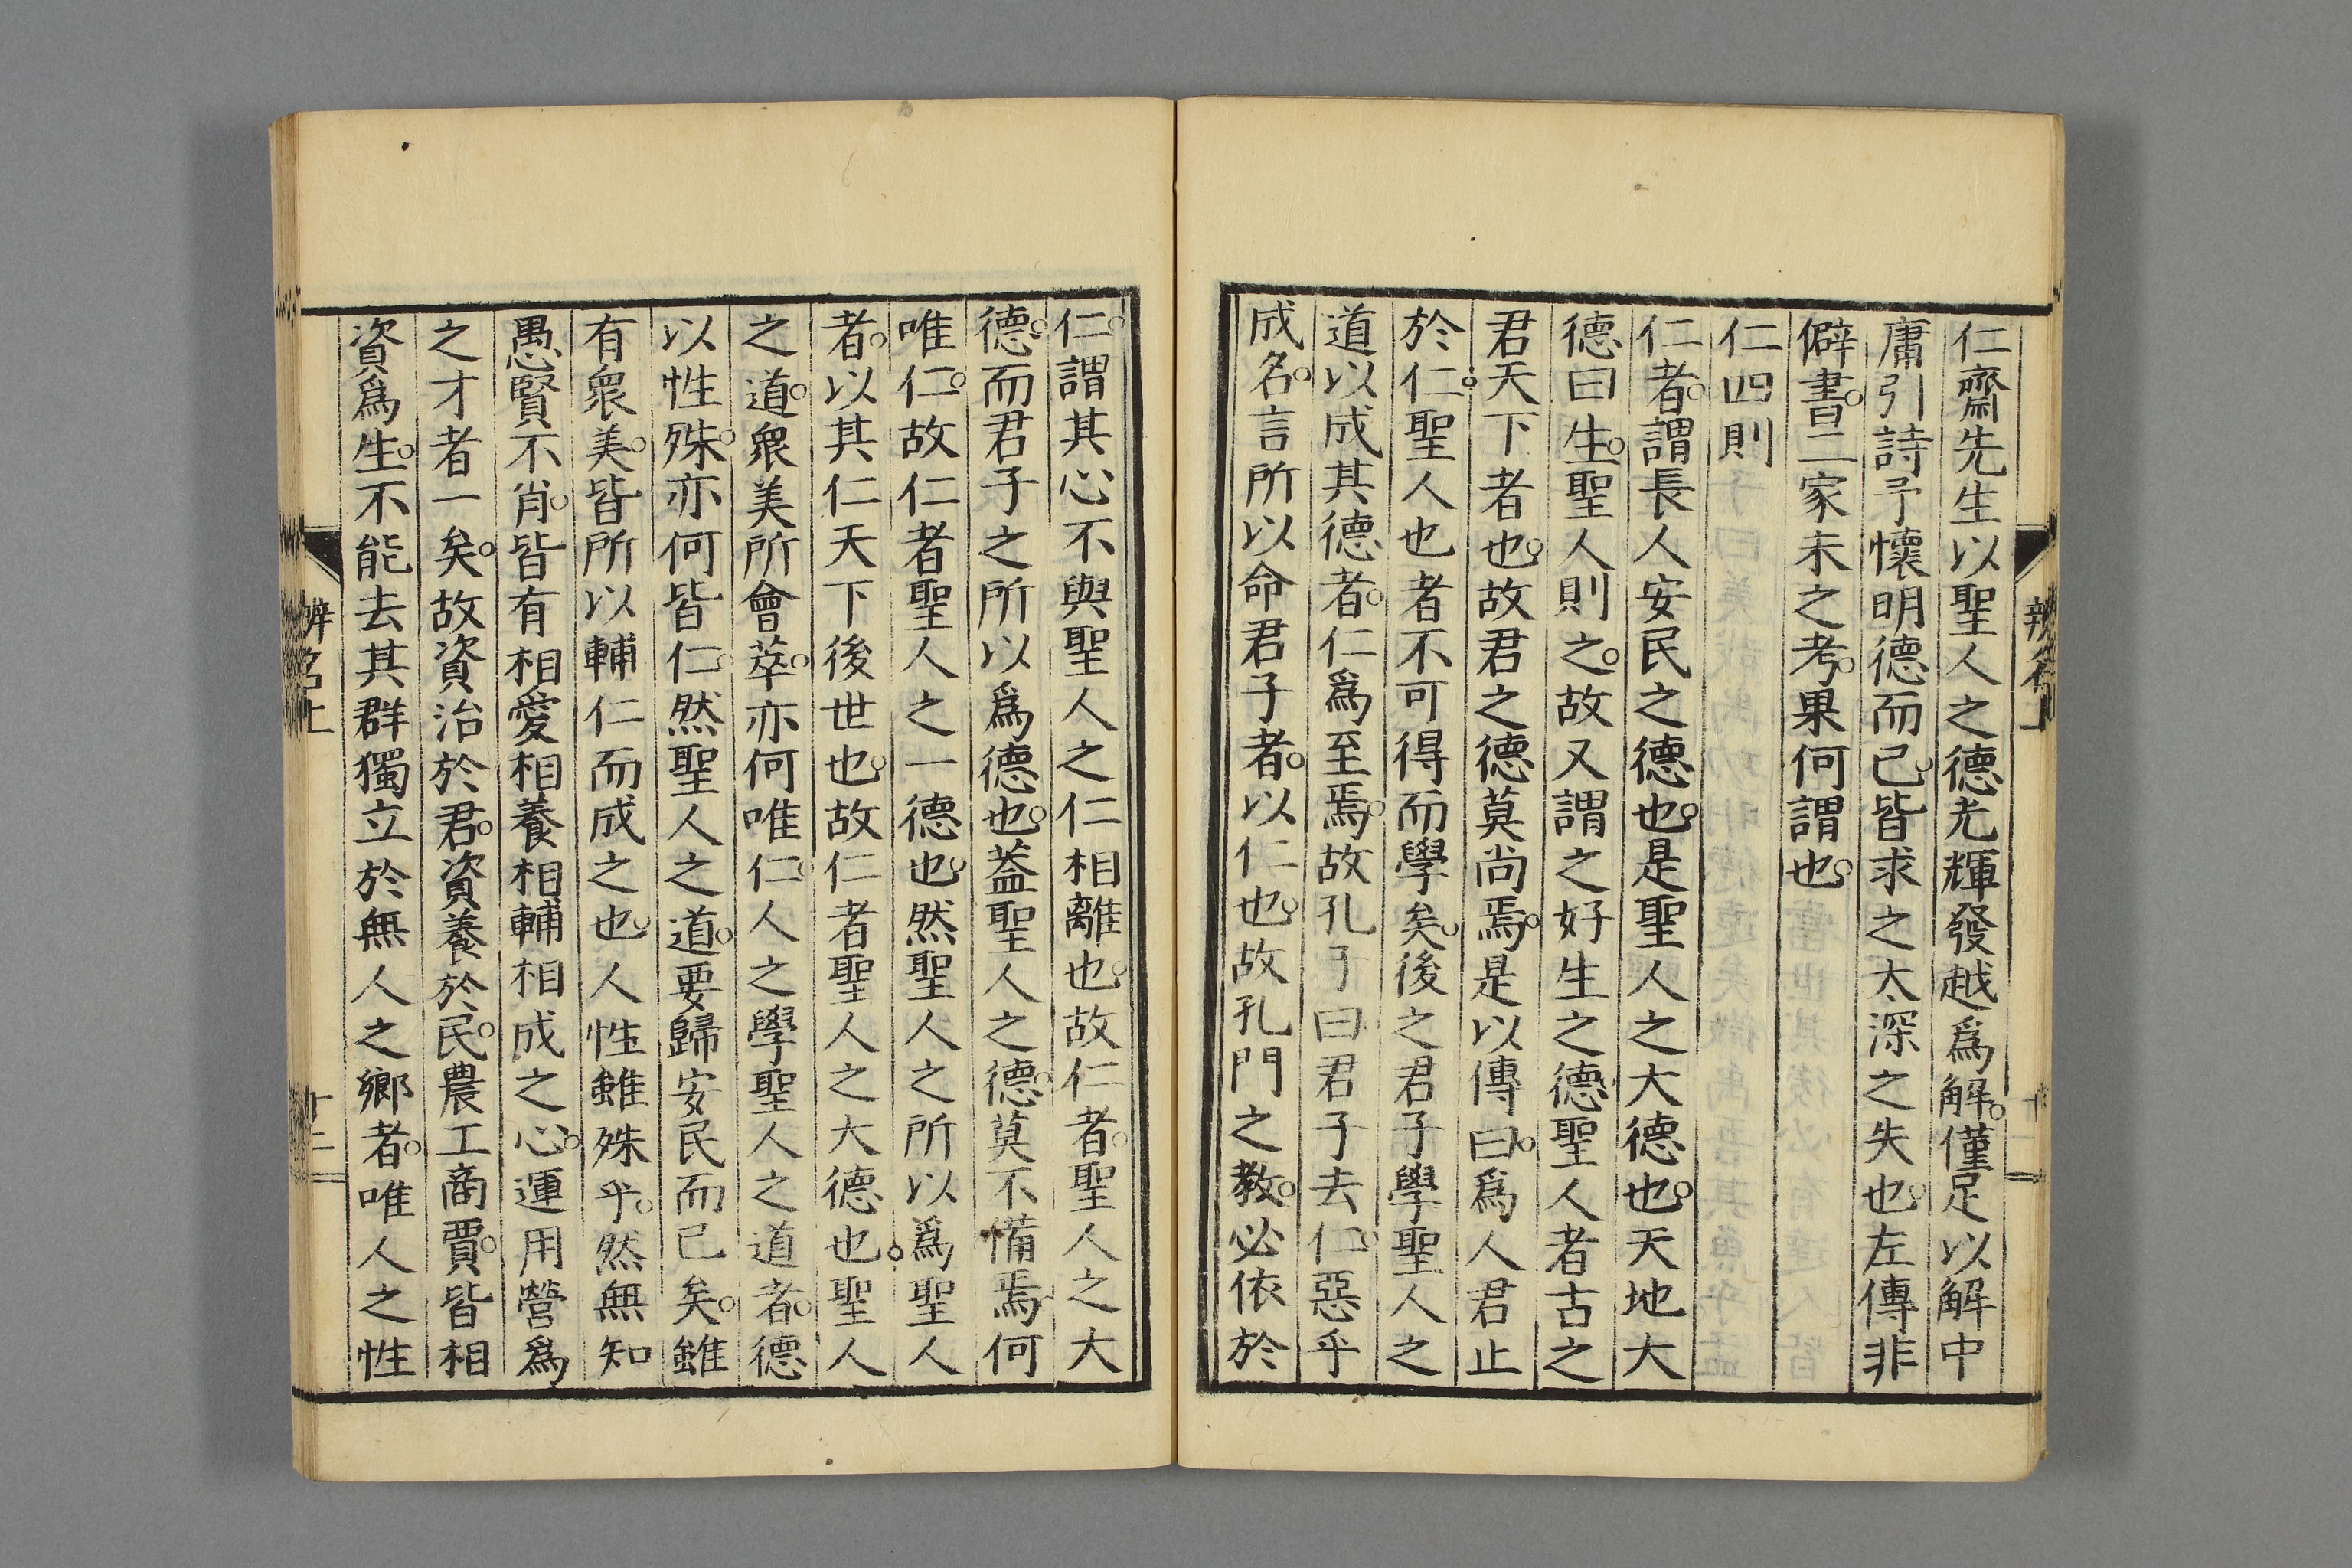 仁齋先生以聖人之德光輝發越爲解。僅足以解中
庸引詩予懷明德而已。皆求之太深之失也。左傳非
僻書。二家未之考。果何謂也。
仁四則
仁者。謂長人安民之德也。是聖人之大德也。天地大
德曰生。聖人則之。故又謂之好生之德。聖人者古之
君天下者也。故君之德莫尚焉。是以傳曰。爲人君止
於仁。聖人也者不可得而學矣。後之君子學聖人之
道以成其德者。仁爲至焉。故孔子曰君子去仁。惡乎
成名。言所以命君子者。以仁也。故孔門之教。必依於
仁。謂其心不與聖人之仁相離也。故仁者。聖人之大
德。而君子之所以爲德也。蓋聖人之德。莫不備焉。何
唯仁。故仁者聖人之一德也。然聖人之所以爲聖人
者。以其仁天下後世也。故仁者聖人之大德也。聖人
之道。衆美所會萃。亦何唯仁。人之學聖人之道者。德
以性殊。亦何皆仁。然聖人之道。要歸安民而已矣。雖
有衆美。皆所以輔仁而成之也。人性雖殊乎。然無知
愚賢不肖。皆有相愛相養相輔相成之心。運用營爲
之才者一矣。故資治於君。資養於民。農工商賈。皆相
資爲生。不能去其群獨立於無人之鄉者。唯人之性
辨名上
十二